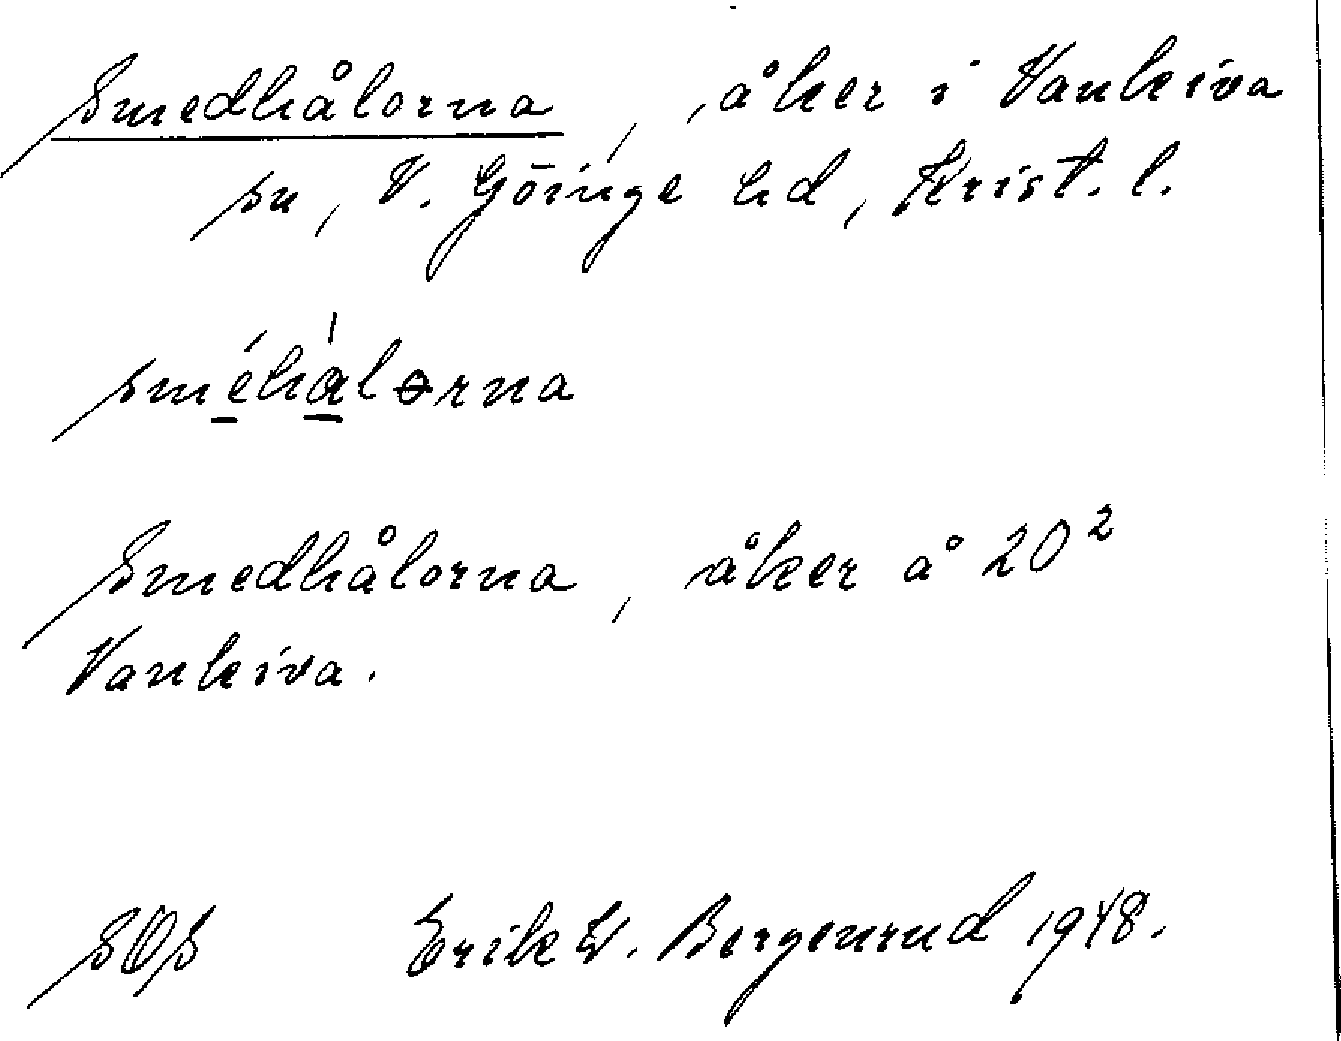 Smedhålorna, åker i Vankiva
sn, V. Göinge hd, Krist. l.
sméhàlɵrna
Smedhålorna, åker å 20²
Vankiva.
SOS Erik W. Bergenrud 1948.